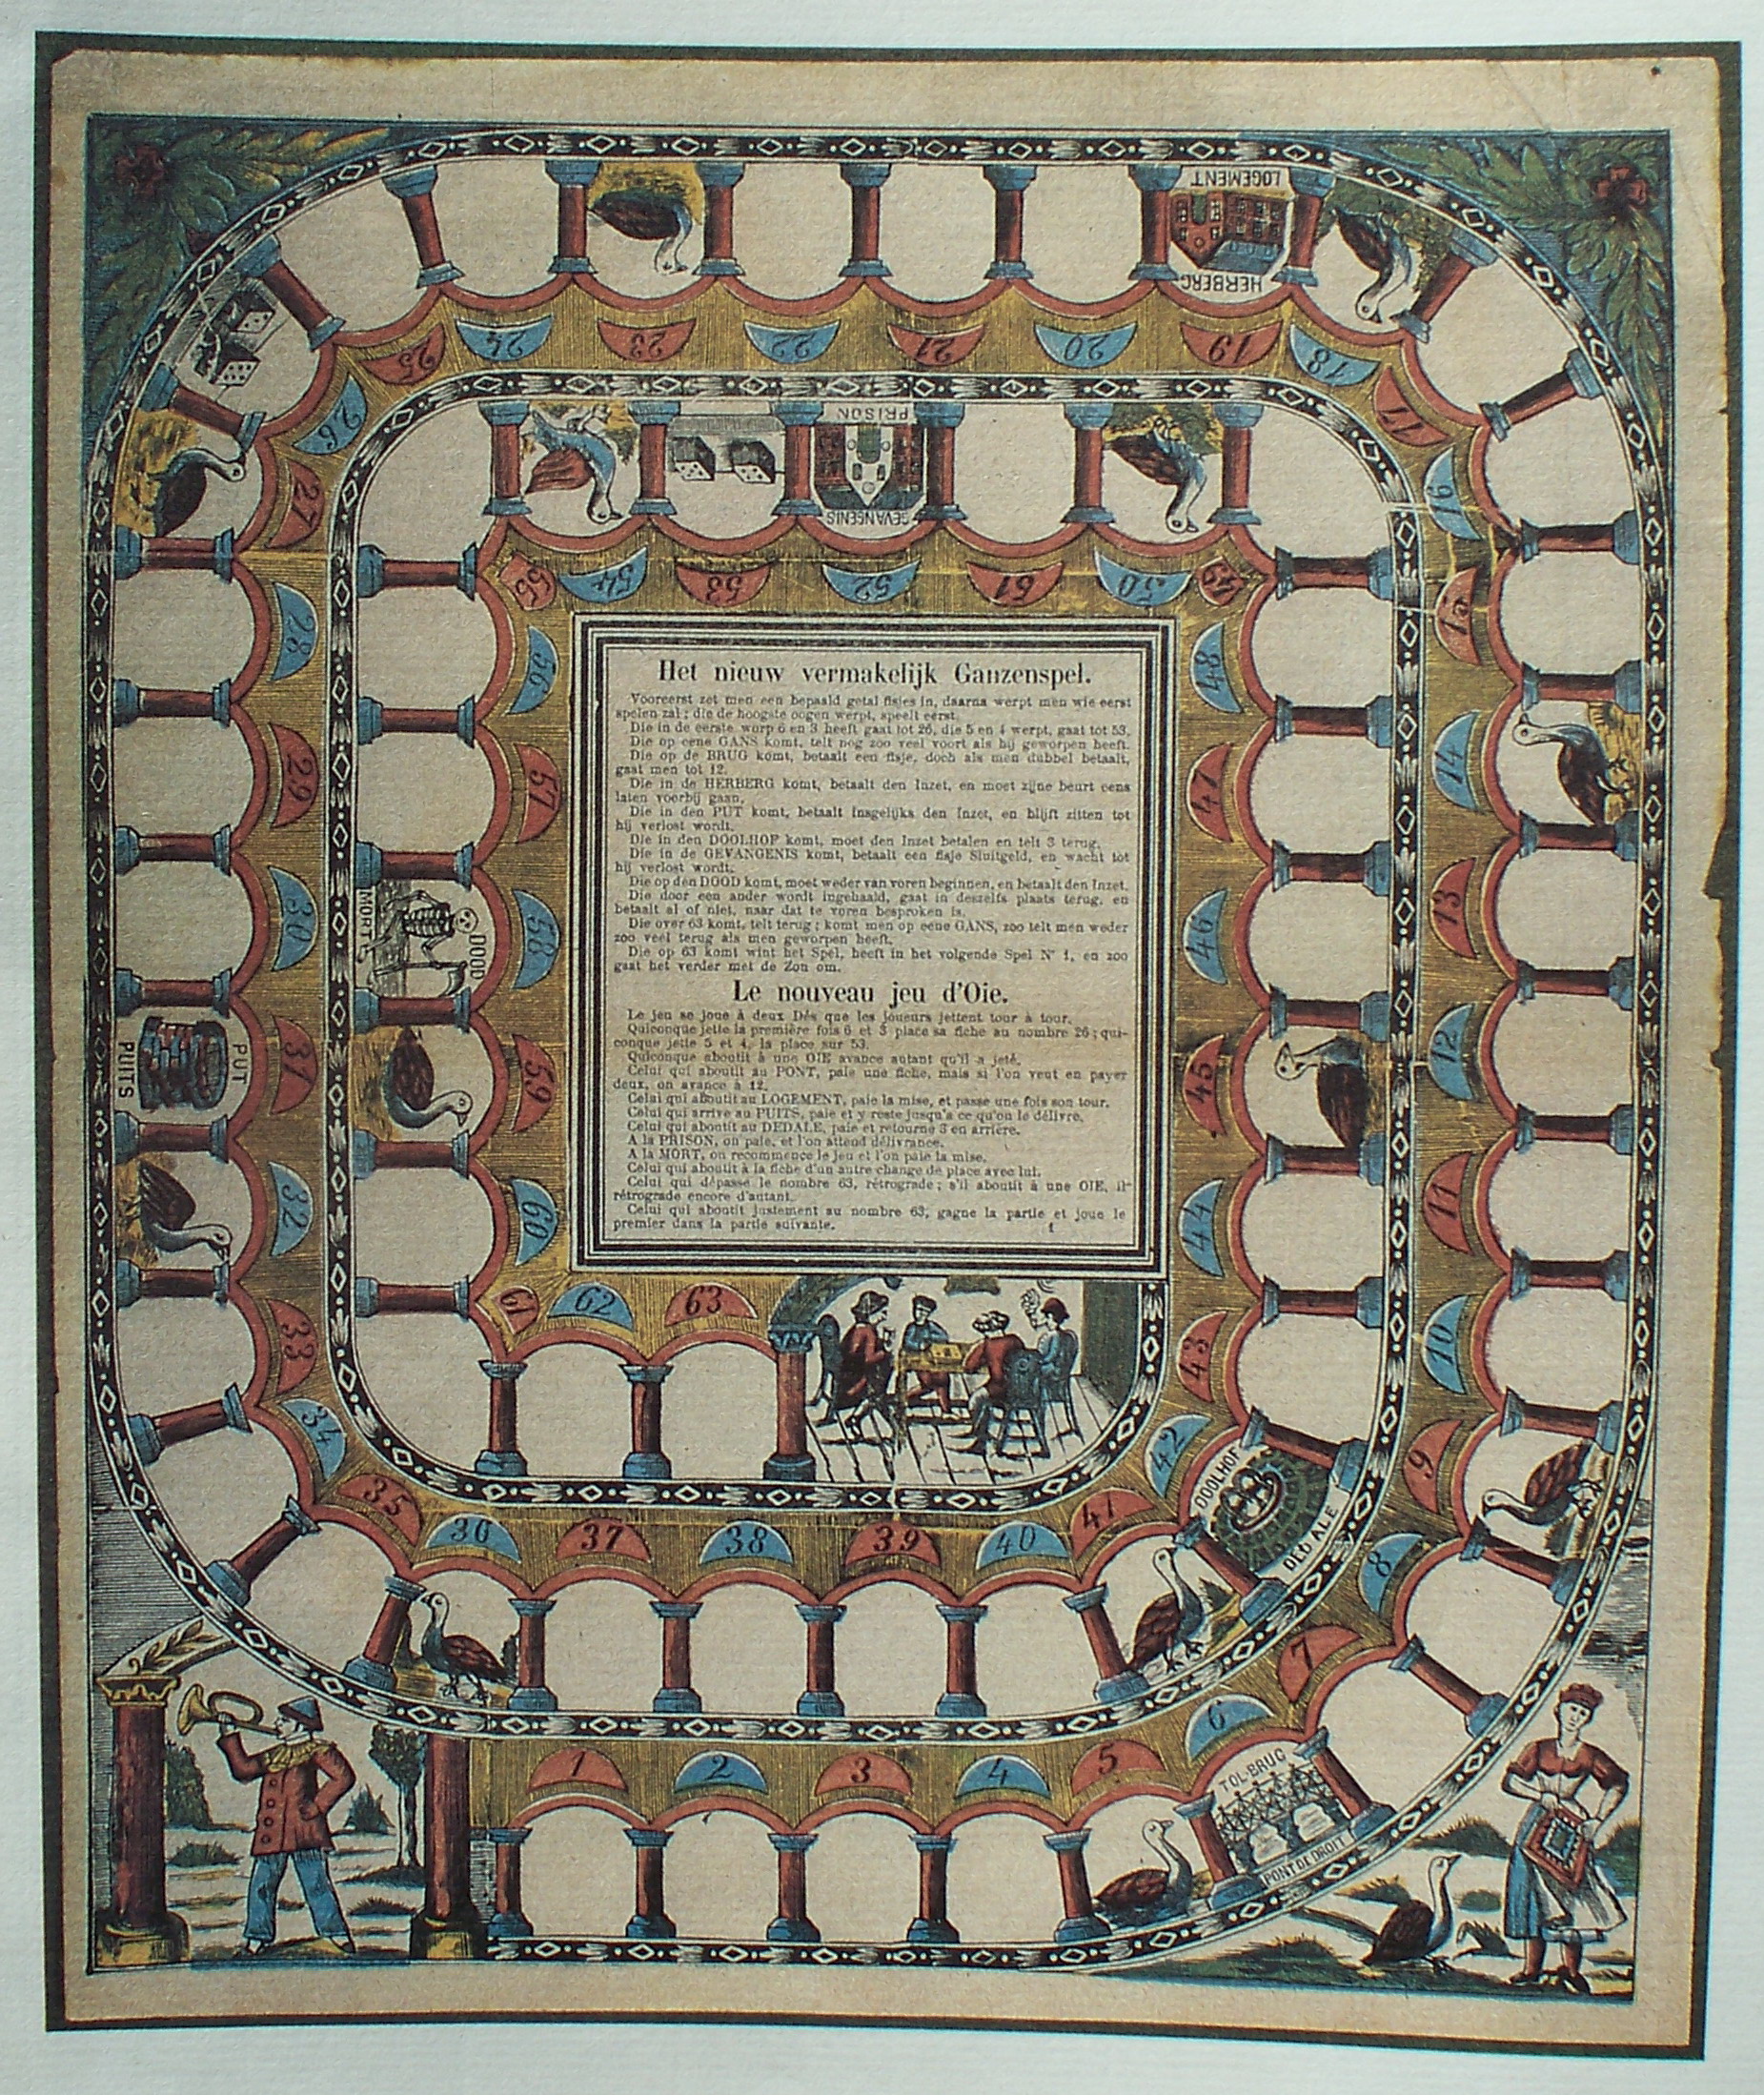 Het nieuw vermakelijk Ganzenspel.
Vooreerst zet men een bepaald getal fisjes in, daarna werpt men wie eerst
spelen zal; die de hoogste oogen werpt, speelt eerst.
Die in de eerste worp 6 en 3 heeft gaat tot 26, die 5 en 4 werpt, gaat tot 53.
Die op eene GANS komt, telt nog zoo veel voort als hij geworpen heeft.
Die op de BRUG komt, betaalt een fisje, doch als men dubbel betaalt,
gaat men tot 12.
Die in de HERBERG komt, betaalt den Inzet, en moet zijne beurt eens
laten voorbij gaan.
Die in den PUT komt, betaalt insgelijks den Inzet, en blijft zitten tot
hij verlost wordt.
Die in den DOOLHOF komt, moet den Inzet betalen en telt 3 terug.
Die in de GEVANGENIS komt, betaalt een fisje Sluitgeld, en wacht tot
hij verlost wordt.
Die op den DOOD komt, moet weder van voren beginnen, en betaalt den Inzet.
Die door een ander wordt ingehaald, gaat in deszelfs plaats terug, en
betaalt al of niet, naar dat te voren besproken is.
Die over 63 komt, telt terug; komt men op eene GANS, zoo telt men weder
zoo veel terug als men geworpen heeft.
Die op 63 komt wint het Spel, heeft in het volgende Spel N° 1, en zoo
gaat het verder met de Zon om.
Le nouveau jeu d'Oie.
Le jeu se joue à deux Dés que les joueurs jettent tour à tour.
Quiconque jette la première fois 6 et 3 place sa fiche au nombre 26; qui-
conque jette 5 et 4, la place sur 53.
Quiconque aboutit à une OIE avance autant qu'il a jeté.
Celui qui aboutit au PONT, paie une fiche, mais si l'on veut en payer
deux, on avance à 12.
Celui qui aboutit au LOGEMENT, paie la mise, et passe une fois son tour.
Celui qui arrive au PUITS, paie et y reste jusqu'a ce qu'on le délivre.
Celui qui aboutit au DEDALE, paie et retourne 3 en arrière.
A la PRISON, on paie, et l'on attend délivrance.
A la MORT, on recommence le jeu et l'on paie la mise.
Celui qui aboutit à la fiche d'un autre change de place avec lui.
Celui qui dépasse le nombre 63, rétrograde; s'il aboutit à une OIE, il
rétrograde encore d'autant.
Celui qui aboutit justement au nombre 63, gagne la partie et joue le
premier dans la partie suivante. 1
1
2
3
4
5
6
TOL-BRUG
PONT DE DROIT
7
8
9
10
11
12
13
14
15
16
17
18
19
HERBERG
LOGEMENT
20
21
22
23
24
25
26
27
28
29
30
31
PUT
PUITS
32
33
34
35
36
37
38
39
40
41
42
DOOLHOF
DEDALE
43
44
45
46
47
48
49
50
51
52
GEVANGENIS
PRISON
53
54
55
56
57
58
DOOD
MORT
59
60
61
62
63